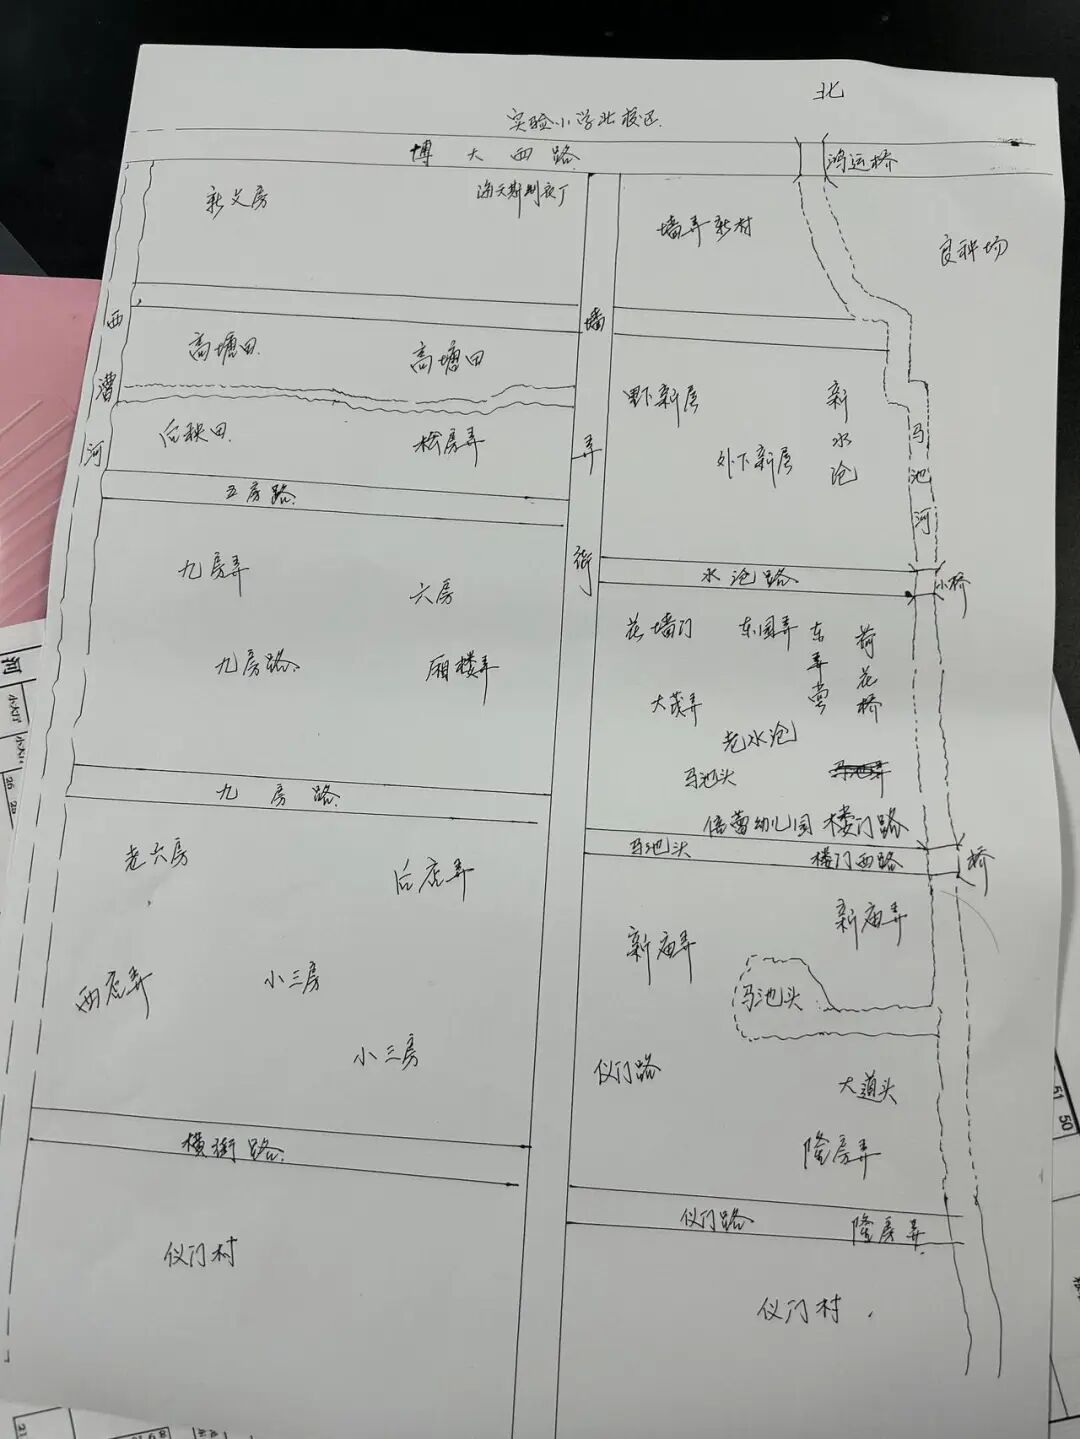 北
实验小学北校区.
博大西路
鸿运桥
新文房
海天斯制衣厂
墙弄新村
良种场
西漕河
墙弄街
高塘田.
高塘田
野下新居
新水沧
外下新居
马池河
后秧田.
桧房弄
五房路.
水沧路
小桥
九房弄
六房
花墙门
东园弄
东弄堂
荷花桥
九房路.
厢楼弄
大茂弄
老水沧
马池头
马池弄
倍蕾幼儿园
楼门路
九房路.
马池头
楼门西路
桥
老六房
后底弄
新庙弄
新庙弄
西底弄
小三房
马池头
小三房
仪门路
大道头
隆房弄
横街路.
仪门路
隆房弄.
仪门村
仪门村.
河
51 50